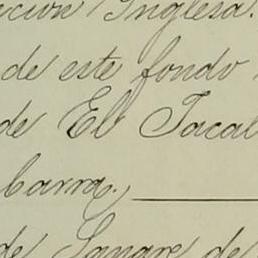 ección Inglesa.
de este fondo
de El Tacal
barra.,
de Sangre de